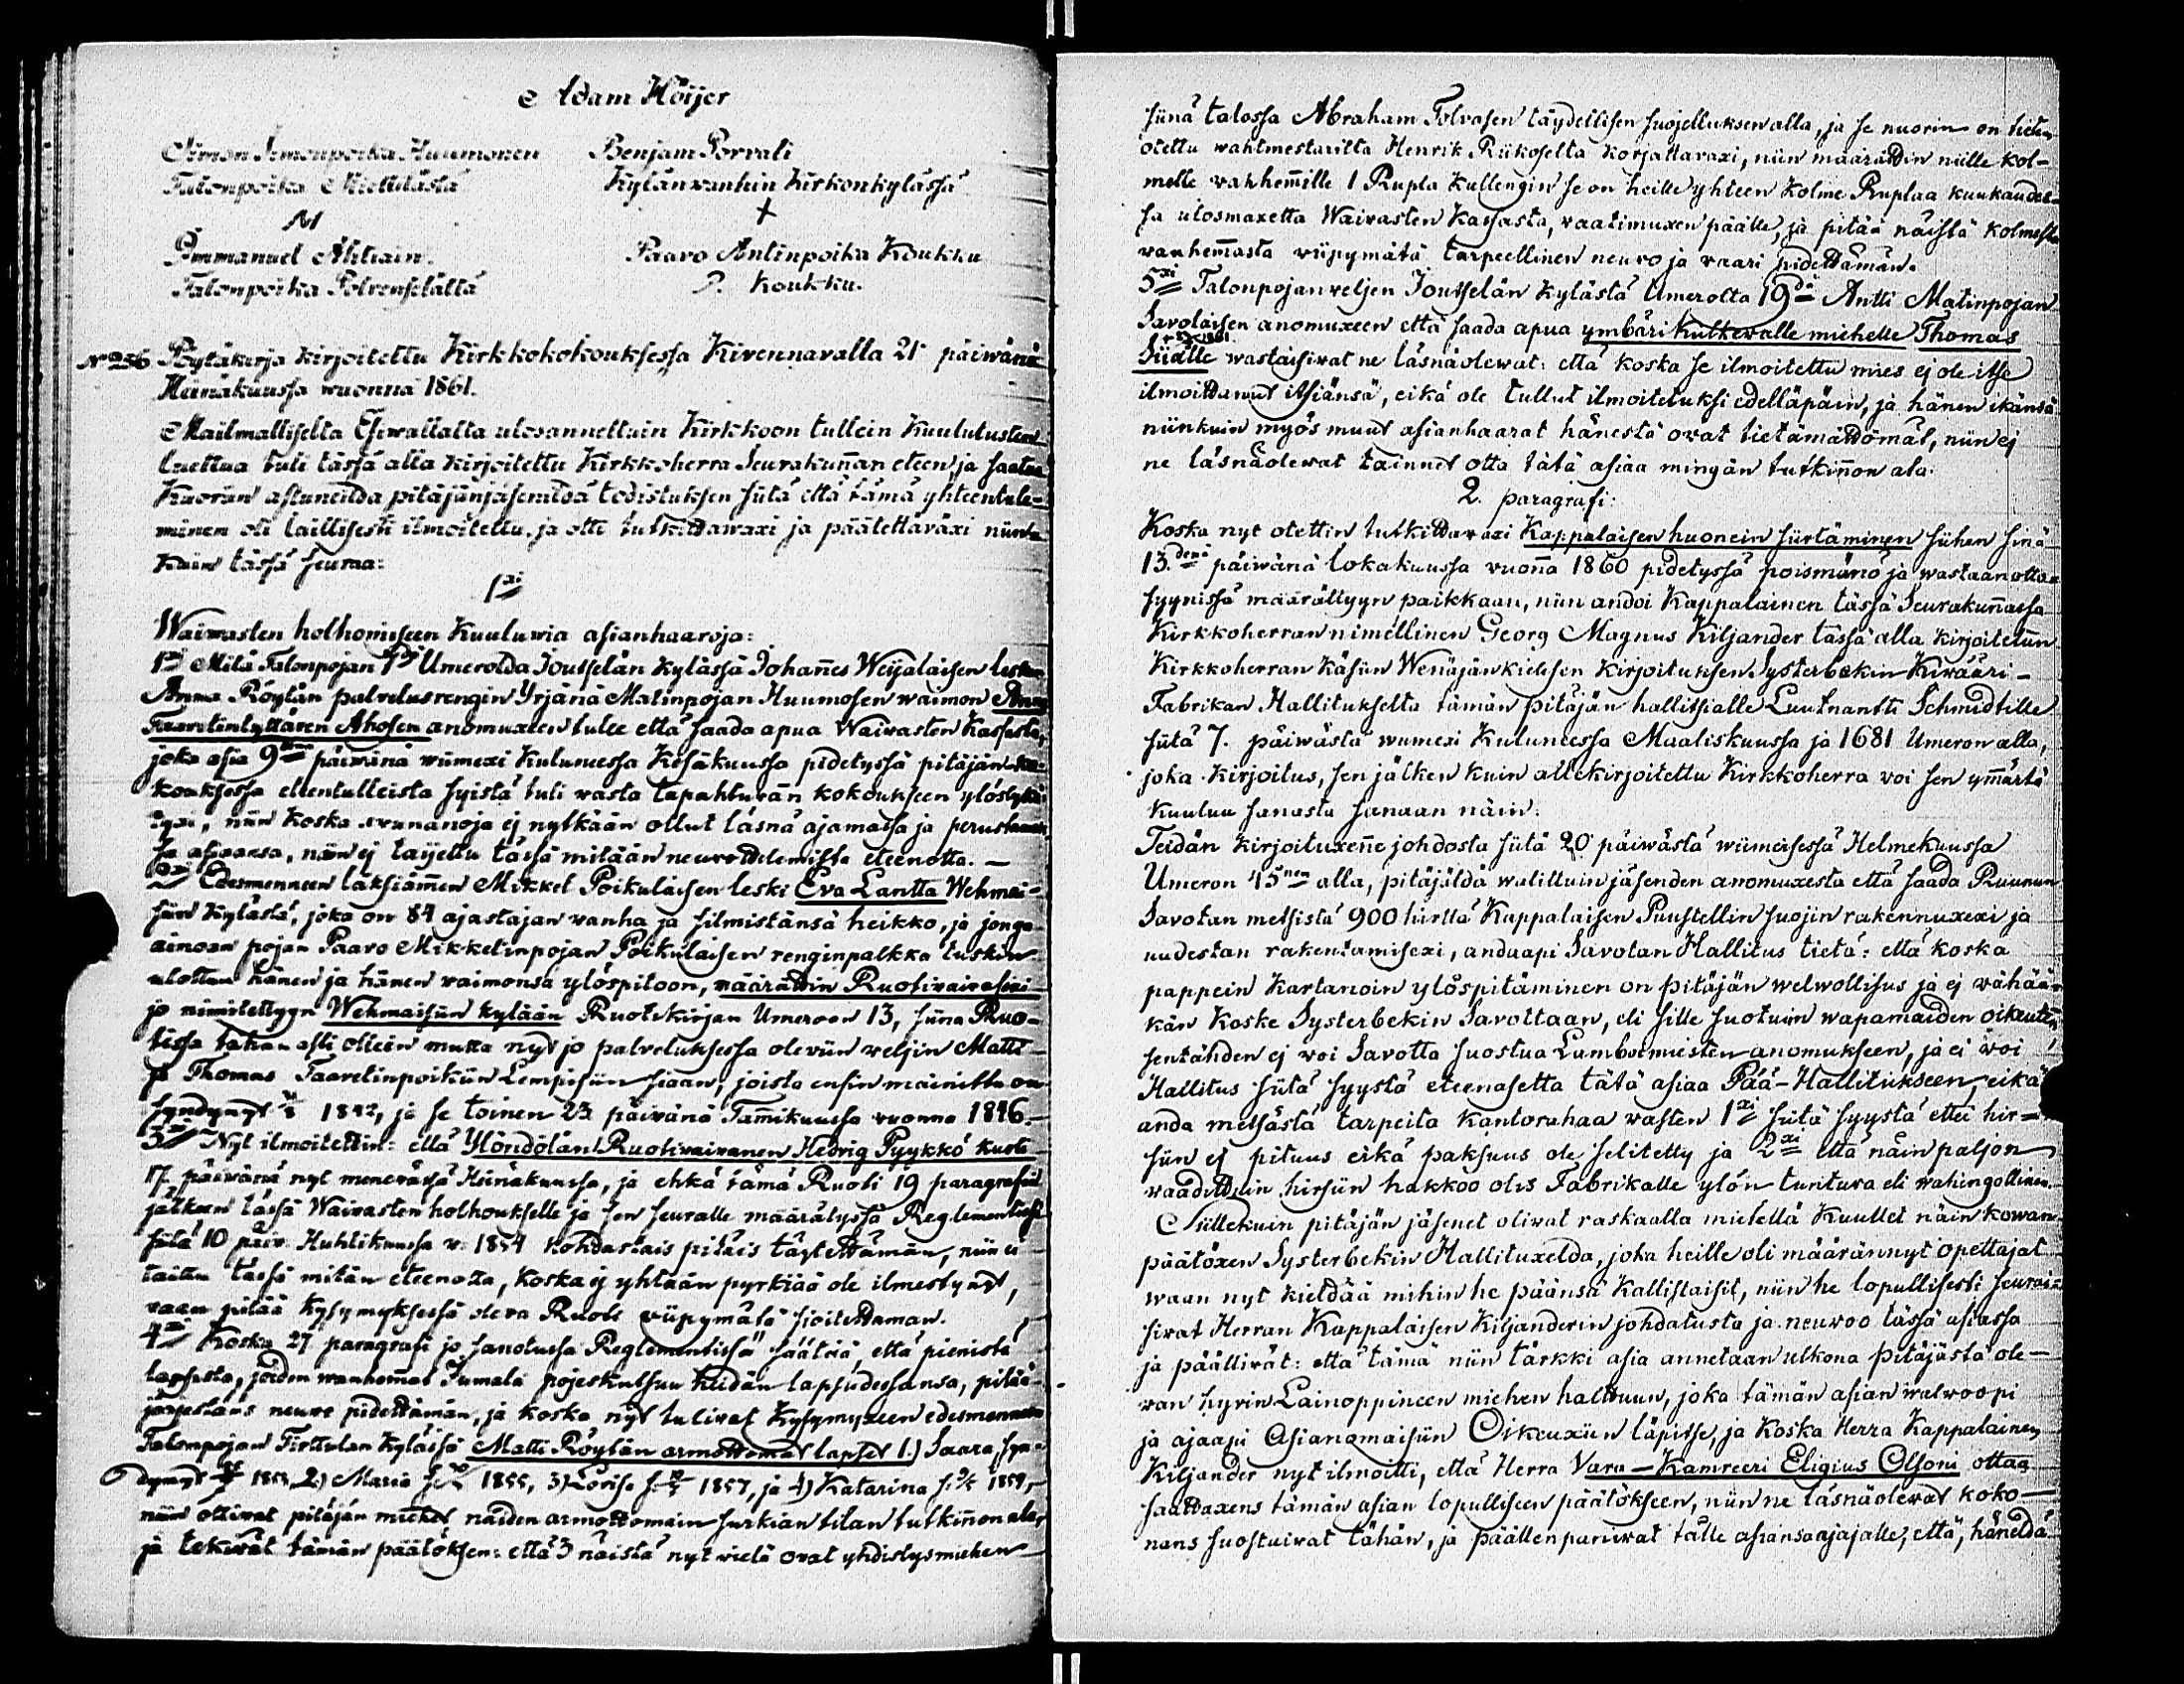 Adam Höijer
Simon Simonpoika Huumonen
Talonpoika
M
Immanuel Ahtiain.
Talonpoika Polvenselältä
Benjam Porvali
Kylänvanhin Kirkonkylässä
+
Paavo Antinpoika Koukku
P. Koukku.
No 256 Pöytäkirja kirjoitettu Kirkkokokouksessa Kivennavalla 21 päiwänä
Heinäkuussa wuonna 1861.
Mailmalliselta Esiwallalta ulosannettuin Kirkkoon tullein Kuulutusten
luettua tuli tässä alla kirjoitettu Kirkkoherra Seurakuñan eteen ja saatua
Kuorin astuneilda pitäjänjäsenildä todistuksen siitä että tämä yhteentule-
minen oli laillisesti ilmoitettu, ja otti tutkittawaxi ja päätettäväxi niinn-
kuin tässä seuraa:
1xi
Waiwasten holhomiseen Kuuluwia asianhaaroja:
1xi Mitä Talonpojan Umerolda Joutselän Kylässä Johañes Weijalaisen lesken
Anna Röytän palvelusrengin Yrjänä Matinpojan Huumosen waimon Anna
Taavetintyttären Ahosen anomuxeen tulee että saada apua Waiwasten Kassasta,
joka asia 9 päiwänä wiimexi Kuluneessa Kesäkuussa pidetyssä pitäjän ko-
kouksessa eteentulleista syistä tuli wasta tapahtuvan kokoukseen ylöslykä-
tyxi, niin koska avunanoja ej nytkään ollut läsnä ajamassa ja perustamas-
sa asiaansa, niin ej taijettu tässä mitään neuvottelemista eteenotta. —
2xi Edesmenneen laksiämen Mikkel Poikulaisen leski Eva Lantta Wehmai-
siin Kylästä, joka on 84 ajastajan wanha ja silmistänsä heikko, ja jonga
ainoan pojan Paavo Mikkelinpojan Poikulaisen renginpalkka tuskin
ulottuu hänen ja hänen vaimonsa ylöspitoon, määrättin Ruotivaivasexi
jo nimitettyyn Wehmaisiin kylään Ruotikirjan Umeroon 13, siinä Ruo-
tissa tähän asti olleiin mutta nyt jo palveluksessa oleviin weljiin Matti
ja Thomas Taavetinpoikiin Lempisiin siaan, joista ensin mainittu on
syndynyt 1842, ja se toinen 23 päivänä Tam̃ikuussa vuonna 1846.
3xi Nyt ilmoitettin: että Ylöndölän Ruotivaivanen Hedvig Pyykkö kuoli
17 päivänä nyt menevässä Heinäkuussa, ja ehkä tämä Ruoti 19 paragrafin
jälkeen tässä Waivasten holhoukselle ja sen seuralle määrätyssä Reglementissä
siitä 10 päiv. Huhtikuussa v. 1854 kohdastais pitäis täytettämän, niin ei
taittu tässä mitän eteenotta, koska ej yhtään pyrkiää ole ilmestynyt,
vaan pitää kysymyksessä oleva Ruoti viipymätä sioitettaman.
4xi Koska 27 paragrafi jo sanotussa Reglementissä säätää, että pienistä
lapsista, joiden wanhemat Jumala pojeskutsuu heidän lapsudessansa, pitää
järjestäns neuvo pidettämän, ja koska nyt tulivat Kysymyxeen edesmenneen
Talonpojan Tirttulan Kylässä Matti Röytän armottomat lapset 1.) Saara syn-
dynyt 1853, 2) Maria s. 1855, 3) Lovisa s. 1857, ja 4) Katarina s. 1859,
niin ottivat pitäjän miehet näiden armottomain surkian tilan tutkiñon ala,
ja tekivät tämän päätöksen: että 3 näistä nyt vielä ovat yhdistysmiehen
siinä talossa Abraham Tolvasen täydellisen suojelluksen alla, ja se nuorin on
otettu wahtmestarilta Henrik Riikoselta korjattavaxi, niin määrättin niille kol-
melle vanhem̃ille 1 Rupla kullengin se on heille yhteen Kolme Ruplaa kuukaudes-
sa ulosmaxetta Waivasten Kassasta, vaatimuxen päälle, ja pitää näistä kolmesta
vanhem̃asta viipymätä tarpeellinen neuvo ja vaari pidettämän.
5xi Talonpojanveljen Joutselän kylästä Umerolta 19 Antti Matinpojan
Savolaisen anomuxeen että saada apua ymbäri kulkevalle miehelle Thomas
1861
Siialle wastaisiwat ne läsnäolewat: että koska se ilmoitettu mies ej ole itse
ilmoittanut itsiänsä, eikä ole tullut ilmoitetuksi edelläpäin, ja hänen ikänsä
niinkuin myös muut asianhaarat hänestä ovat tietämättömät, niin ej
ne läsnäolewat tainnet otta tätä asiaa mingän tutkiñon ala.
2. paragrafi:
Koska nyt otettin tutkittavaxi Kappalaisen huonein siirtäminen siihen siinä
13.denä päiwänä Lokakuussa vuoña 1860 pidetyssä poismänö ja wastaanotto-
syynissä määrättyyn paikkaan, niin andoi Kappalainen tässä Seurakuñassa
Kirkkoherran nimellinen Georg Magnus Kiljander tässä alla kirjoitetun
Kirkkoherran käsiin Wenäjänkielisen Kirjoituksen Systerbäkin Kivääri-
Fabrikan Hallitukselta tämän pitäjän hallitsialle Luutnantti Schmidtille
siitä 7. päiwästä wiimexi Kuluneessa Maaliskuussa ja 1681 Umeron alla,
joka Kirjoitus, sen jälken kuin allekirjoitettu Kirkkoherra voi sen ym̃ärtä
kuuluu sanasta sanaan näin:
Teidän kirjoituxeñe johdosta siitä 20 päiwästä wiimeisessä Helmekuussa
Umeron 45nen alla, pitäjäldä walittuin jäsenden anomuxesta että saada Ruunun
Savotan metsistä 900 hirttä Kappalaisen Puustellin suojiin rakennuxexi ja
uudestan rakentamisexi, andaapi Savotan Hallitus tietä: että koska
pappein Kartanoin ylöspitäminen on pitäjän welwollisus ja ej vähää-
kän koske Systerbekin Savottaan, eli sille suotuin wapamaiden oikeuten,
sentähden ej voi Savotta suostua Lumbormiesten anomukseen, ja ei voi
Hallitus siitä syystä eteenasetta tätä asiaa Pää-Hallitukseen eikä
anda metsästä tarpeita kantorahaa vasten 1xi siitä syystä ettei hir-
siin ej pituus eikä paksuus ole selitetty ja 2xi että näin paljon
vaadittuin hirsiin hakkoo olis Fabrikalle ylön tuntuva eli wahingollinen.
Niillekuin pitäjän jäsenet olivat raskaalla mielellä kuullet näin kowan
päätöxen Systerbekin Hallituxelda, joka heille oli määrännyt opettajat
waan nyt kieldää mihin he päänsä Kallistaisit, niin he lopullisesti seurai-
sivat Herran Kappalaisen Kiljanderin johdatusta ja neuwoo tässä asiassa
ja päättivät: että tämä niin tärkki asia annetaan ulkona pitäjästä ole-
van hyvin Lainoppineen miehen halttuun, joka tämän asian walwoopi
ja ajaapi Asianomaisiin Oikeuxiin läpitse, ja koska Herra Kappalainen
Kiljander nyt ilmoitti, että Herra Vara-Kamreeri Eligius Olsoni ottaa
saattaxens tämän asian lopulliseen päätökseen, niin ne läsnäolevat koko-
nans suostuivat tähän, ja päällenpanivat tälle asiansaajajalle, että, häneldä